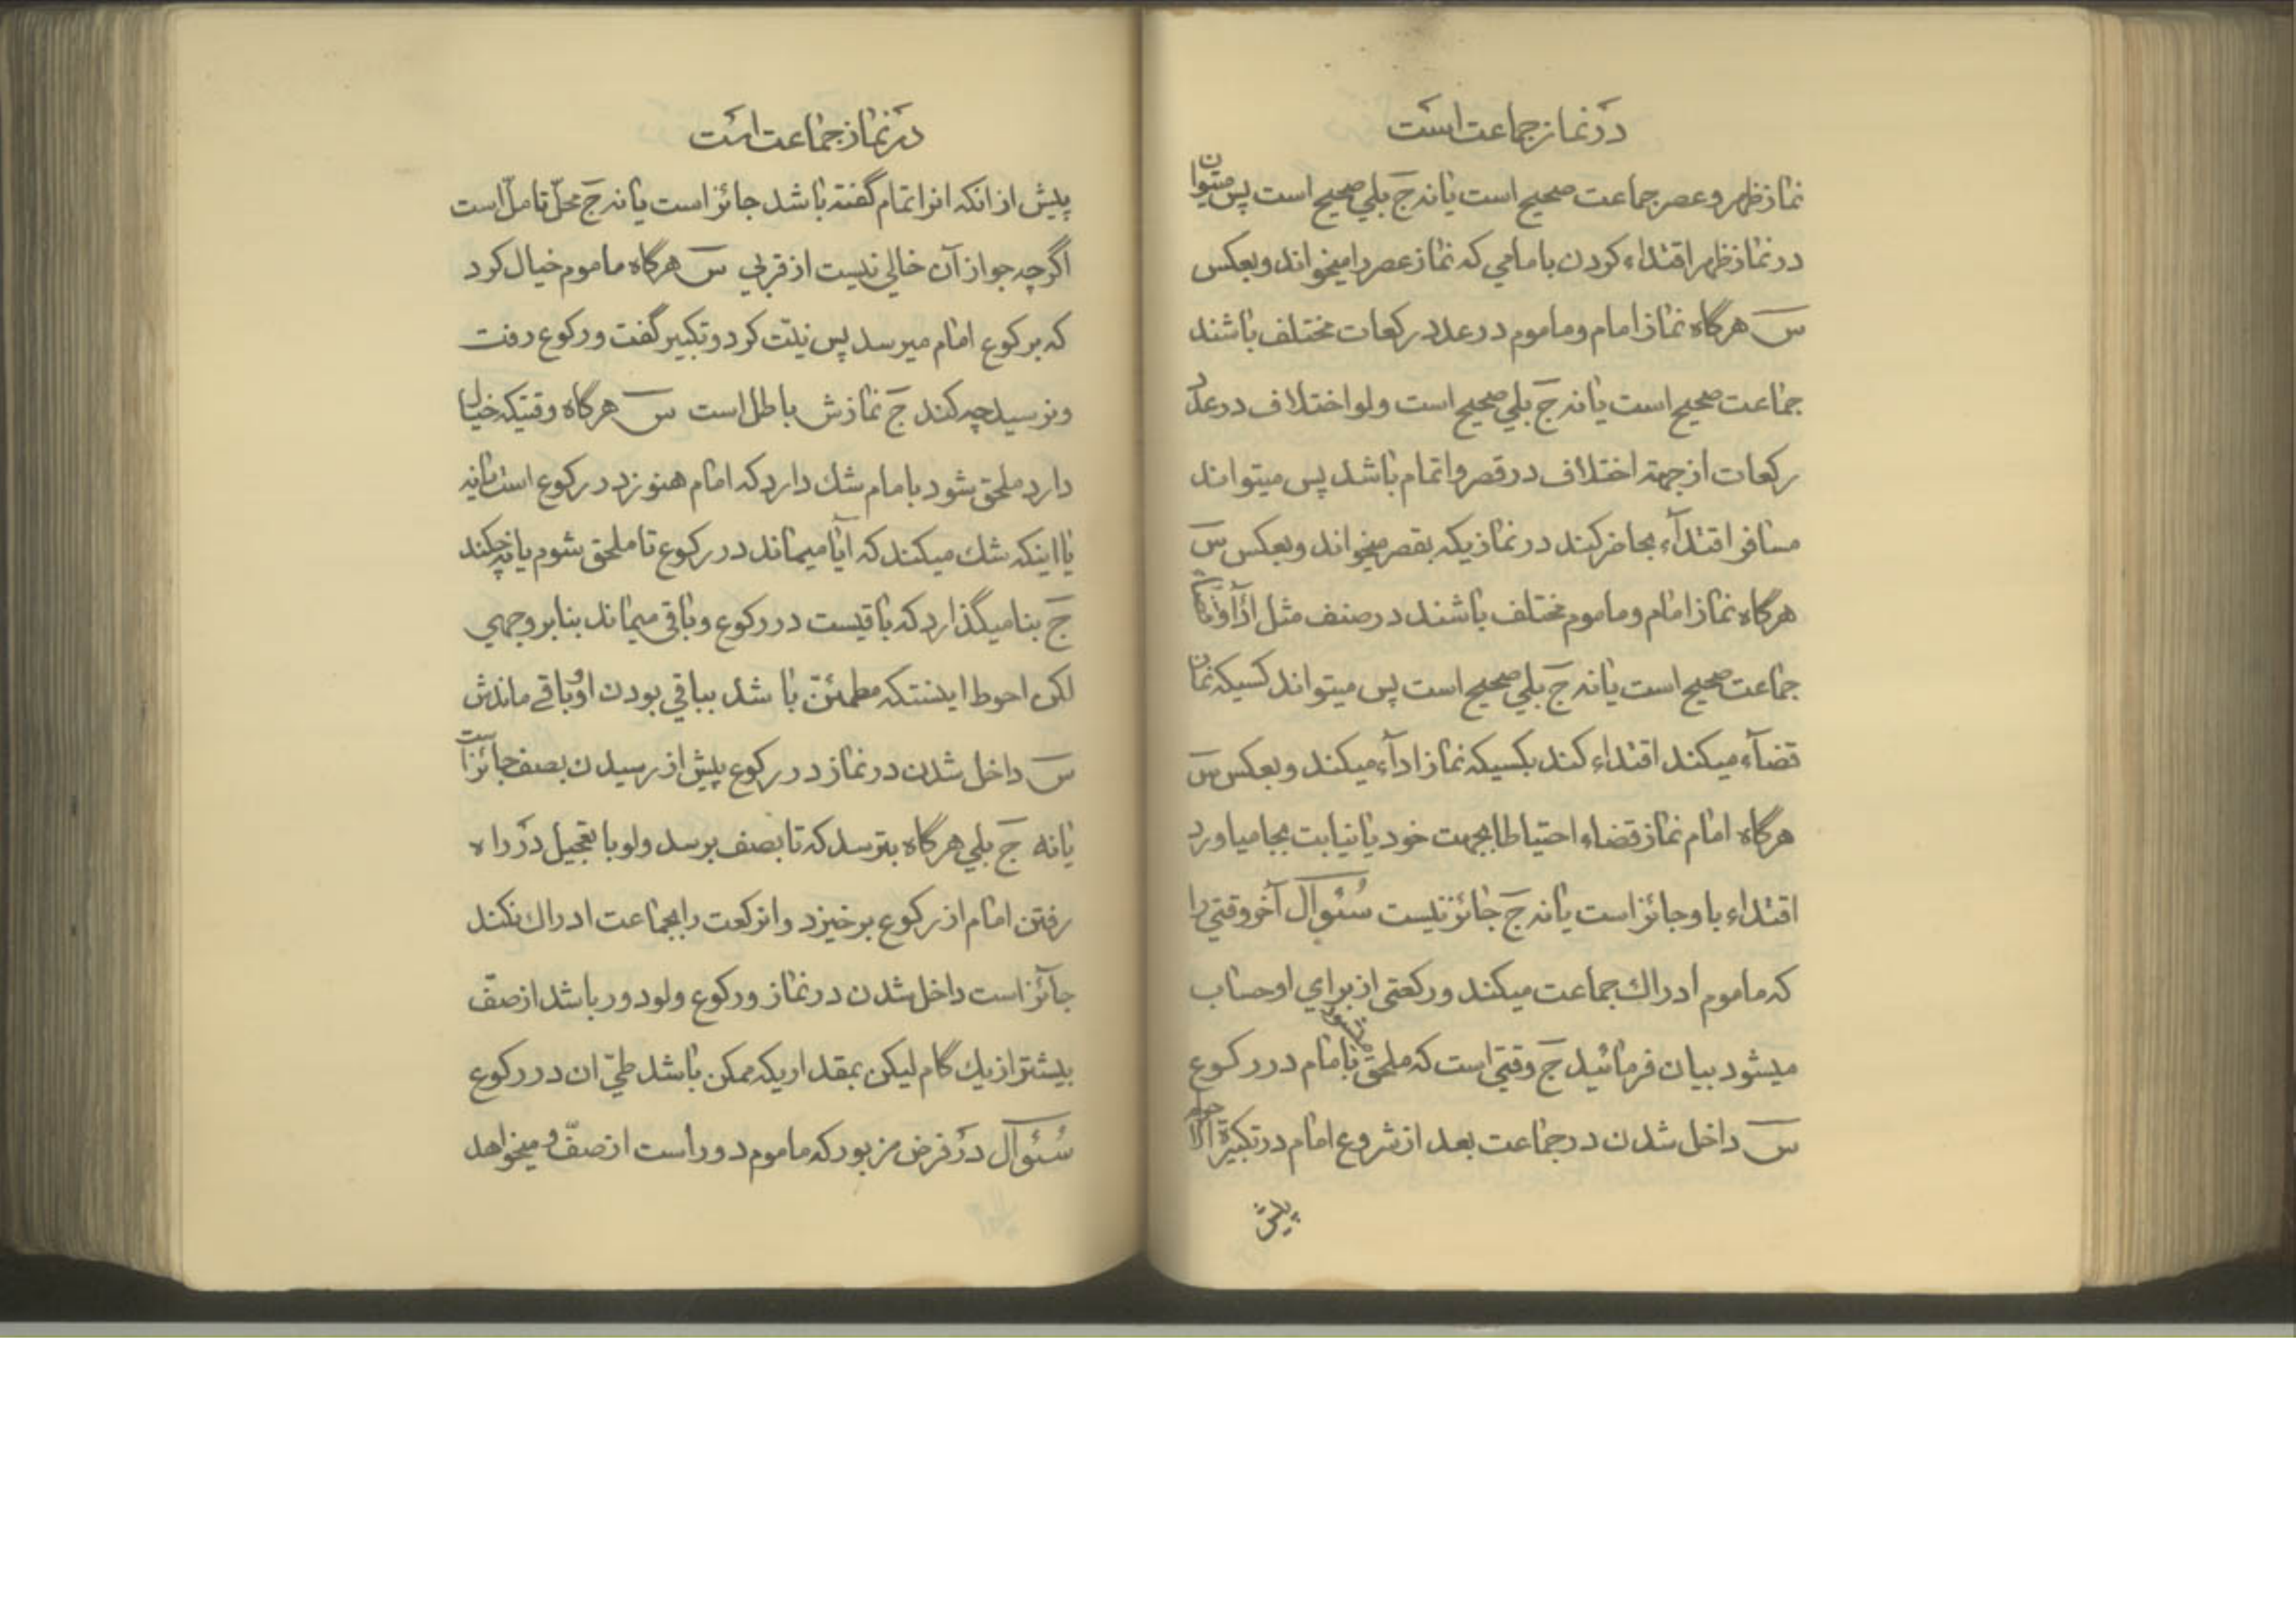 در نماز جماعت است
نماز ظهر و عصر جماعت صحیح است یا نه ج بلي صحیح است پس میتوان
در نماز ظهر اقتداء کردن بامامي که نماز عصر را میخواند و بعکس
س هرگاه نماز امام و ماموم در عدد رکعات مختلف باشند
جماعت صحیح است یا نه ج بلي صحیح است و لو اختلاف در عدد
رکعات از جهة اختلاف در قصر و اتمام باشد پس میتواند
مسافر اقتدآء بحاضر کند در نمازیکه بقصر میخواند و بعکس س
هرگاه نماز امام و ماموم مختلف باشند در صنف مثل
جماعت صحیح است یا نه ج بلي صحیح است پس میتواند کسیکه نماز
قضآء میکند اقتداء کند بکسیکه نماز ادآء میکند و بعکس س
هرگاه امام نماز قضاء احتیاطا بجهت خود یا نیابت بجا میاورد
اقتداء باو جائز است یا نه ج جائز نیست سُئوآل آخر وقتي را
که ماموم ادراك جماعت میکند و رکعتی از براي او حساب
میشود بیان فرمائید ج وقتي است که ملحق میشود با مام در رکوع
س داخل شدن در جماعت بعد از شروع امام در تکبیرة
پیش
در نماز جماعت است
پیش از انکه انرا تمام گفته باشد جائز است یا نه ج محلّ تامل است
اگرچه جواز آن خالي نیست از قربي س هرگاه ماموم خیال کرد
که برکوع امام میرسد پس نیّت کرد و تکبیر گفت و رکوع رفت
و نرسید چه کند ج نمازش باطل است س هرگاه وقتیکه خیال
دارد ملحق شود با مام شك دارد که امام هنوز در رکوع است یا نه
یا اینکه شك میکند که آیا میماند در رکوع تا ملحق شوم یا نه چکند
ج بنا میگذارد که باقیست در رکوع و باقی میماند بنا بر وجهي
لکن احوط اینستکه مطمئن باشد بباقي بودن او و باقے ماندش
س داخل شدن در نماز در رکوع پیش از رسیدن بصف جائز است
یا نه ج بلي هرگاه بترسد که تا بصف برسد و لو با تعجیل در راه
رفتن امام از رکوع برخیزد و انرکعت را بجماعت ادراك نکند
جآئز است داخل شدن در نماز و رکوع و لو دور باشد از صفّ
بیشتر از یك گام لیکن بمقداریکه ممکن باشد طيّ ان در رکوع
سُئوآل در فرض مزبور که ماموم دور است از صفّ و میخواهد